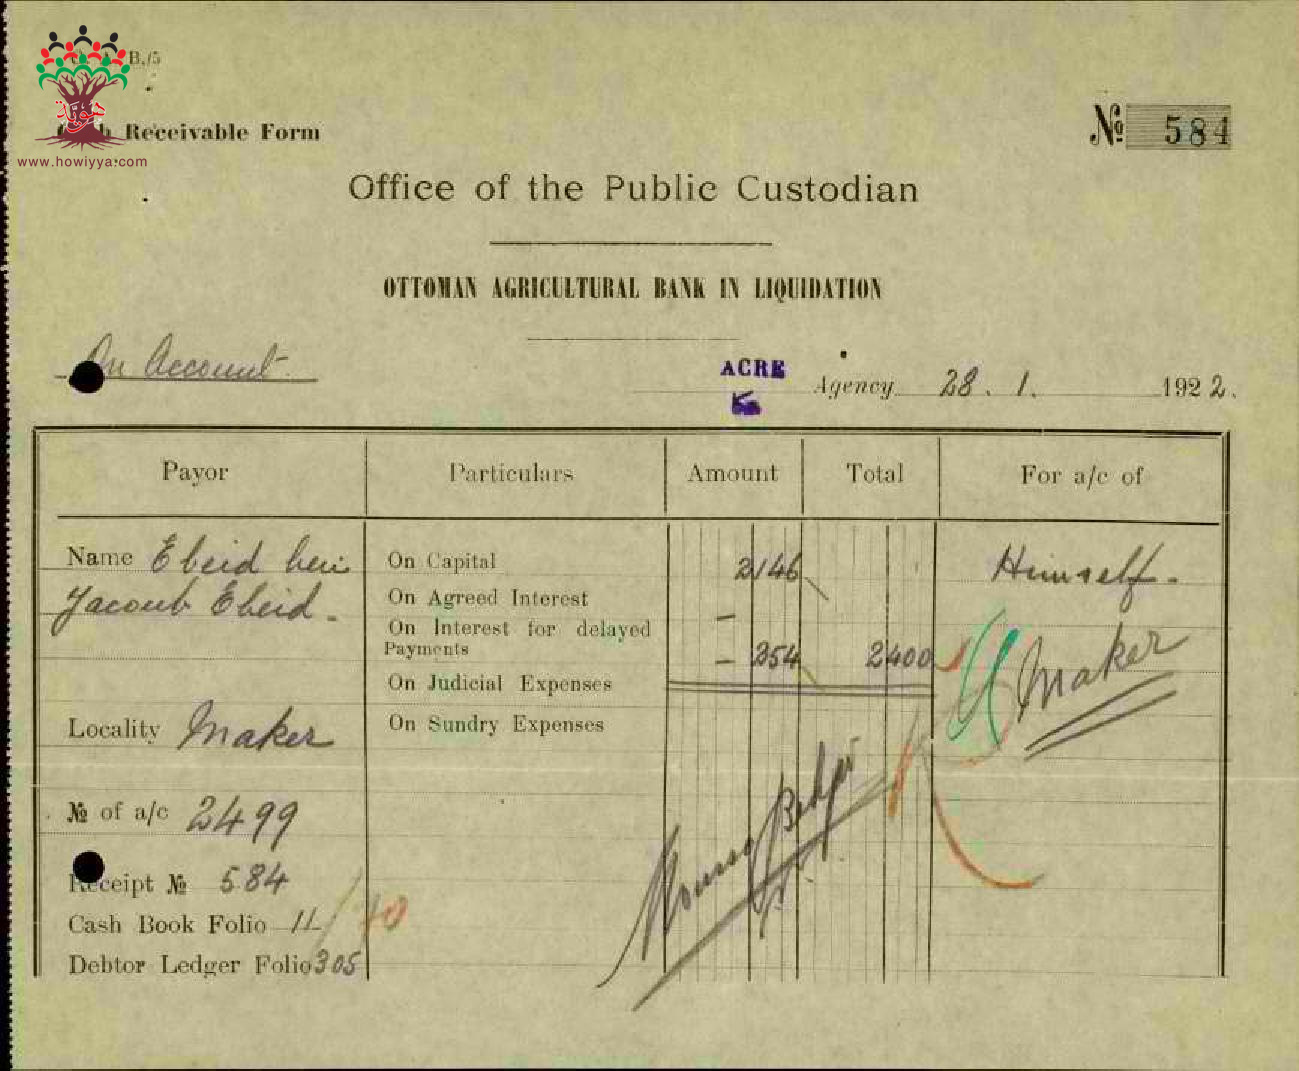 B./5
هوية
www.howiyya.com
Receivable Form
№ 584
Office of the Public Custodian
OTTOMAN AGRICULTURAL BANK IN LIQUIDATION
On Account
ACRE Agency 28. 1. 1922.
Payor Particulars Amount Total For a/c of
Name Ebeid ben On Capital 2146 Himself.
Yacoub Ebeid. On Agreed Interest —
On Interest for delayed
Payments — 254 2400 Maker
On Judicial Expenses
Locality Maker On Sundry Expenses
№ of a/c 2499
Receipt № 584
Cash Book Folio 11
Debtor Ledger Folio 305